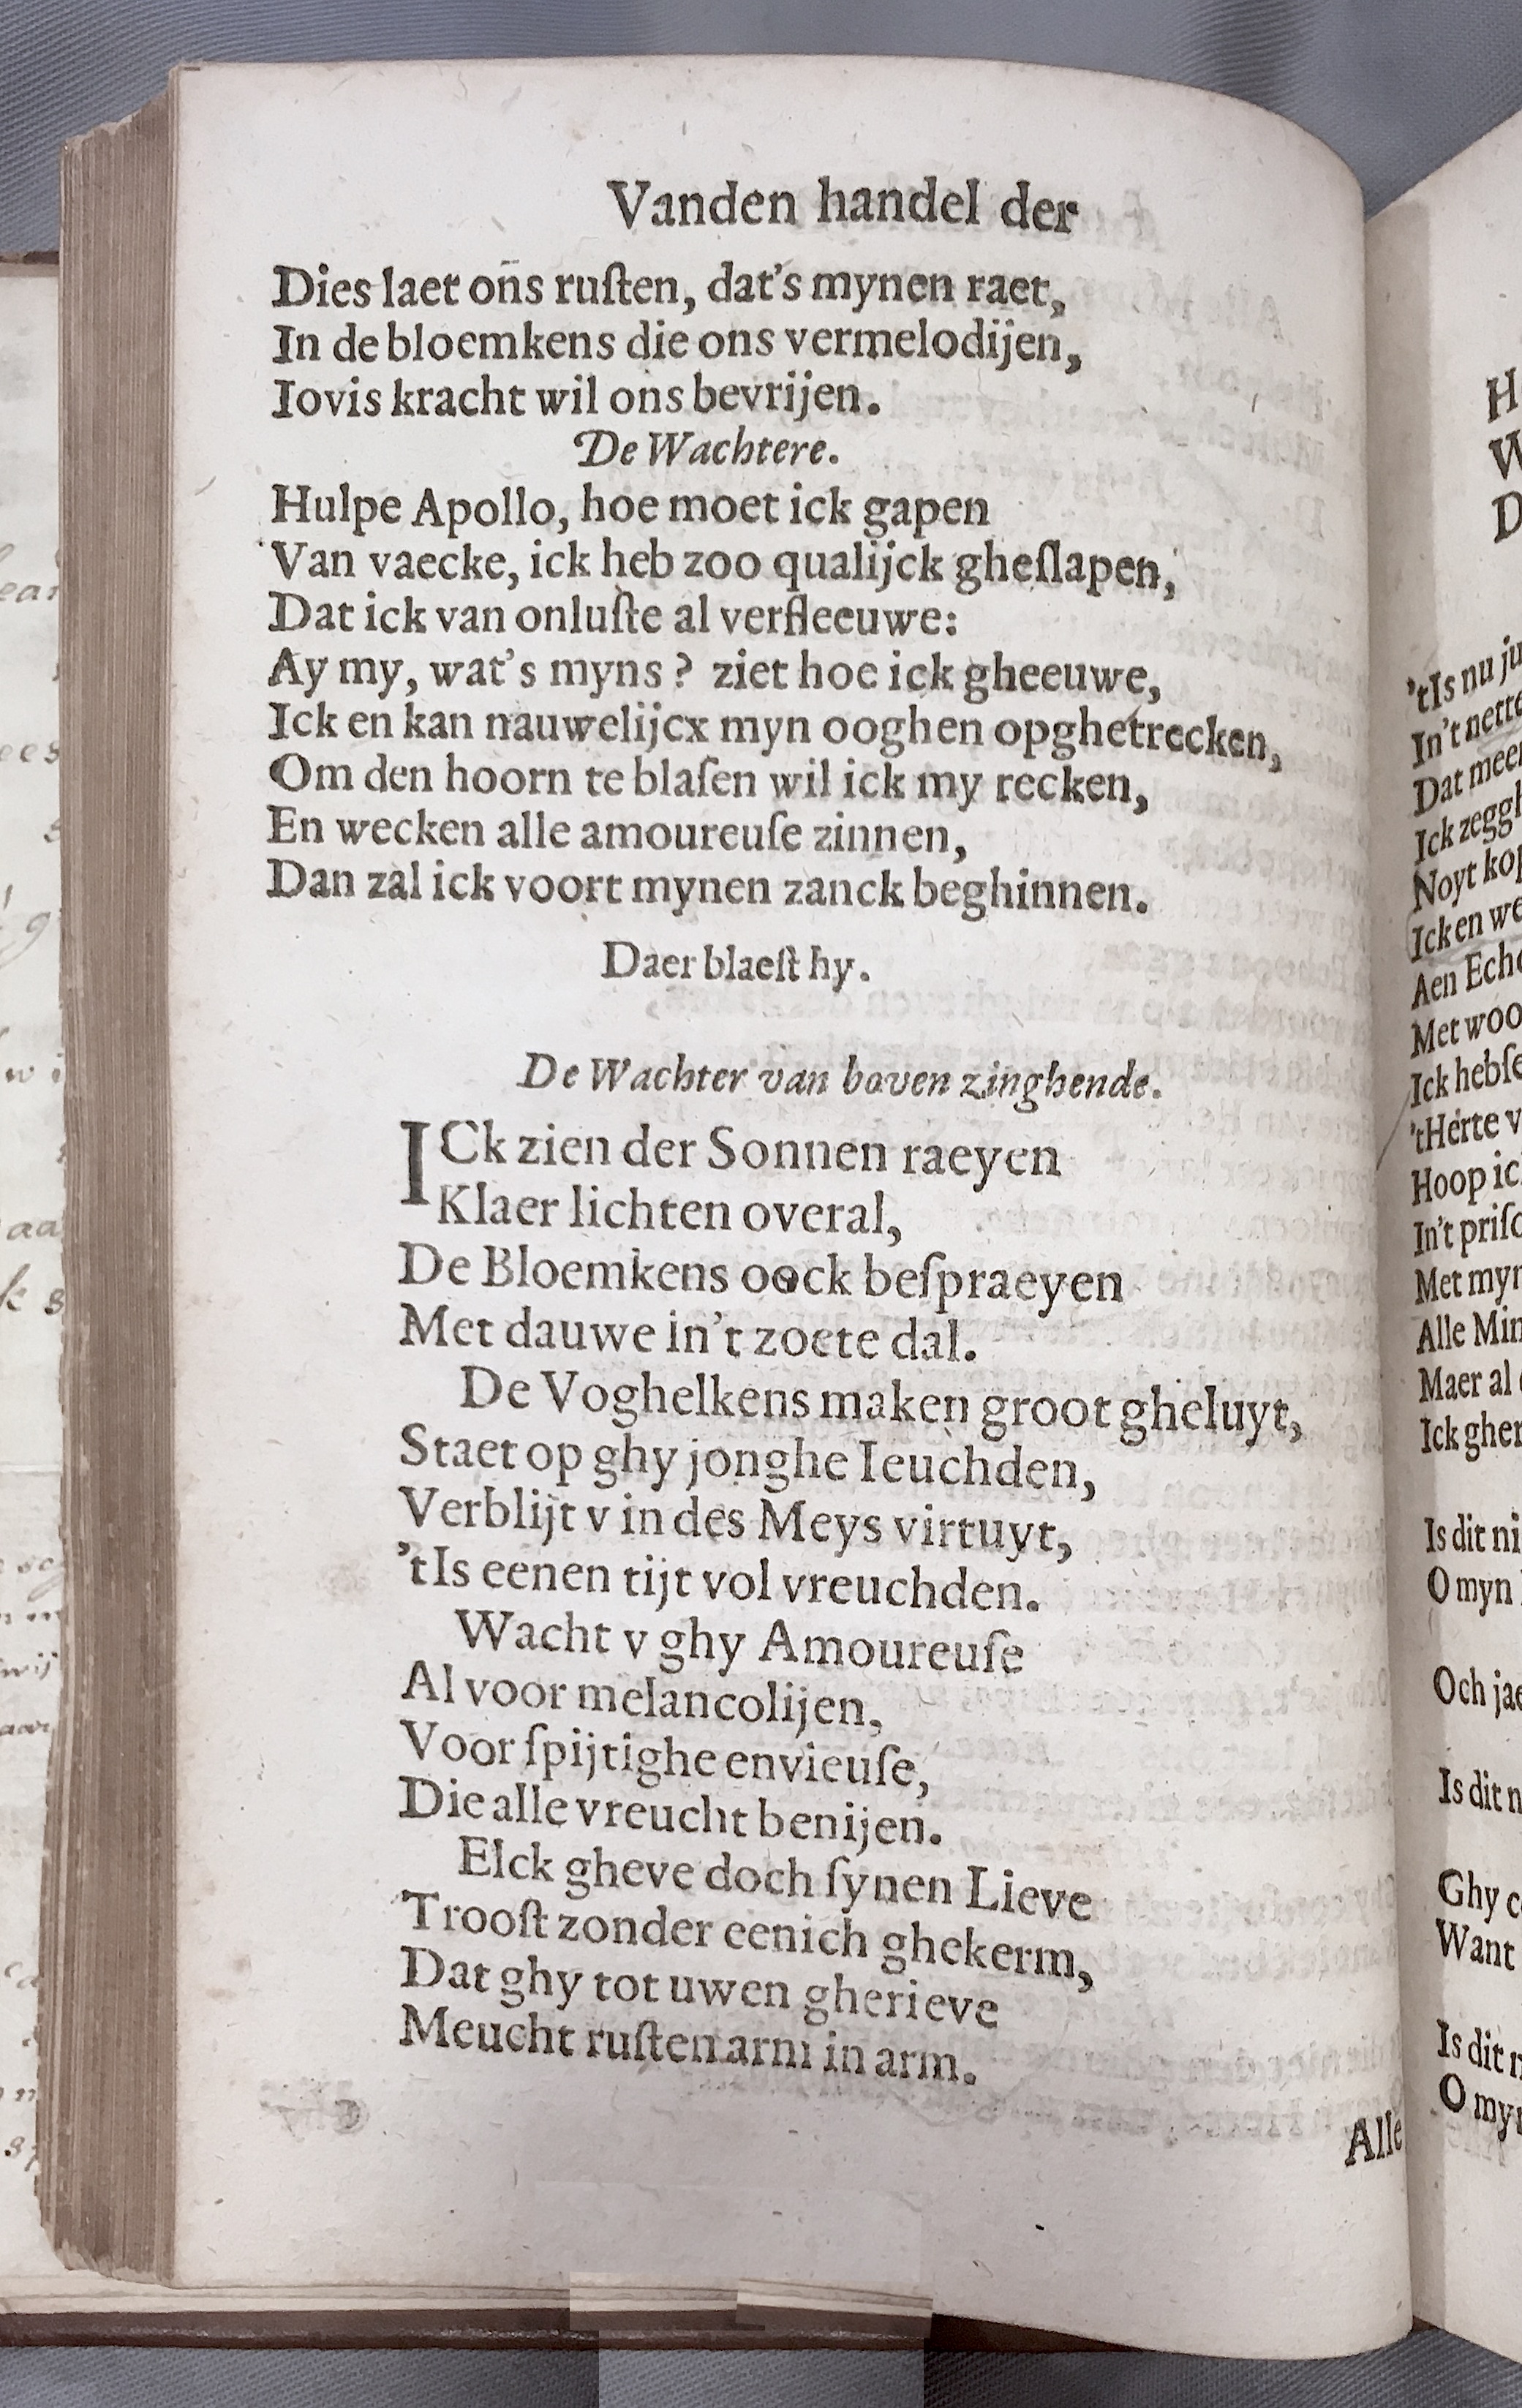 Vanden handel der
Dies laet ons ruſten, dat's mynen raet,
In de bloemkens die ons vermelodijen,
Iovis kracht wil ons bevrijen.
De Wachtere.
Hulpe Apollo, hoe moet ick gapen
Van vaecke, ick heb zoo qualijck gheſlapen,
Dat ick van onluſte al verfleeuwe:
Ay my, wat's myns? ziet hoe ick gheeuwe,
Ick en kan nauwelijcx myn ooghen opghetrecken,
Om den hoorn te blaſen wil ick my recken,
En wecken alle amoureuſe zinnen,
Dan zal ick voort mynen zanck beghinnen.
Daer blaeſt hy.
De Wachter van boven zinghende.
ICk zien der Sonnen raeyen
Klaer lichten overal,
De Bloemkens oock beſpraeyen
Met dauwe in't zoete dal.
De Voghelkens maken groot gheluyt,
Staet op ghy jonghe Ieuchden,
Verblijt v in des Meys virtuyt,
'tIs eenen tijt vol vreuchden.
Wacht v ghy Amoureuſe
Al voor melancolijen,
Voor ſpijtighe envieuſe,
Die alle vreucht benijen.
Elck gheve doch ſynen Lieve
Trooſt zonder eenich ghekerm,
Dat ghy tot uwen gherieve
Meucht ruſten arm in arm.
Alle
'tIs nu
In't
Dat
Ick
Noyt
Ick en
Aen
Met
Ick
'tHerte
Hoop
In't
Met
Alle
Maer al
Ick
Is dit
O myn
Och
Is dit
Ghy
Want
Is dit
O